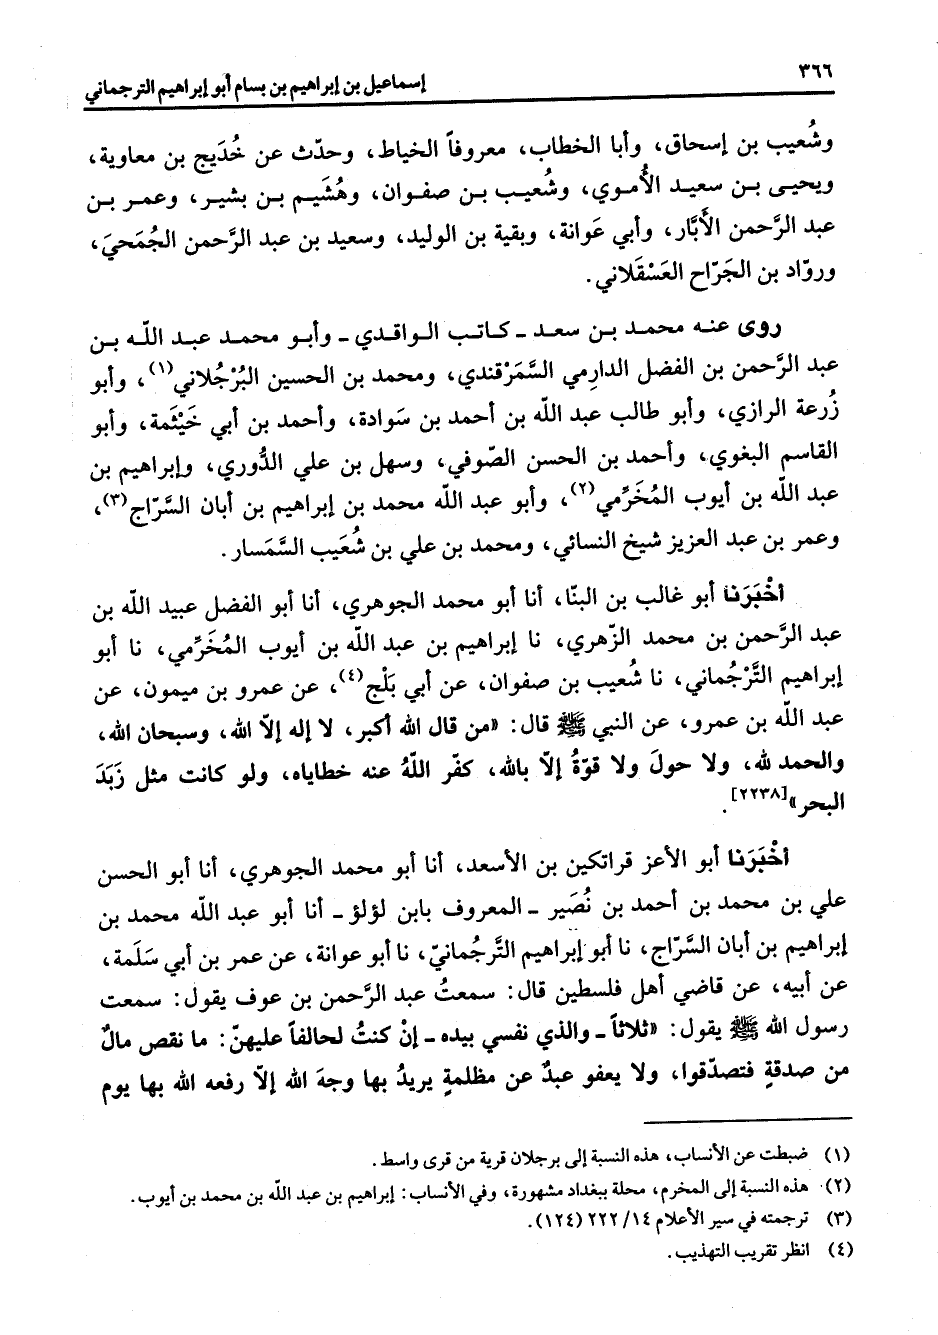 ٣٦٦
إسماعيل بن إبراهيم بن بسام أبو إبراهيم الترجماني
وشُعيب بن إسحاق، وأبا الخطاب، معروفاً الخياط، وحدّث عن خُدَيج بن معاوية،
ويحيى بن سعيد الأُموي، وشُعيب بن صفوان، وهُشَيم بن بشير، وعمر بن
عبد الرَّحمن الأَبَّار، وأبي عَوانة، وبقية بن الوليد، وسعيد بن عبد الرَّحمن الجُمَحيَ،
وروّاد بن الجَرّاح العَسْقَلاني.
روى عنه محمد بن سعد ـ كاتب الواقدي ـ وأبو محمد عبد اللّه بن
عبد الرَّحمن بن الفضل الدارِمي السَّمَرْقندي، ومحمد بن الحسين البُرْجُلاني(١)، وأبو
زُرعة الرازي، وأبو طالب عبد اللّه بن أحمد بن سَوادة، وأحمد بن أبي خَيْثَمة، وأبو
القاسم البغوي، وأحمد بن الحسن الصّوفي، وسهل بن علي الدُّوري، وإبراهيم بن
عبد اللّه بن أيوب المُخَرِّمي(٢)، وأبو عبد اللّه محمد بن إبراهيم بن أبان السَّرّاج(٣)،
وعمر بن عبد العزيز شيخ النسائي، ومحمد بن علي بن شُعَيب السَّمَسار.
أخْبَرَنا أبو غالب بن البنّا، أنا أبو محمد الجوهري، أنا أبو الفضل عبيد اللّه بن
عبد الرَّحمن بن محمد الزّهري، نا إبراهيم بن عبد اللّه بن أيوب المُخَرِّمي، نا أبو
إبراهيم التَّرْجُماني، نا شُعيب بن صفوان، عن أبي بَلْج(٤)، عن عمرو بن ميمون، عن
عبد اللّه بن عمرو، عن النبي ﷺ قال: «من قال اللّه أكبر، لا إله إلاّ اللّه، وسبحان اللّه،
والحمد للّه، ولا حولَ ولا قوّةُ إلاّ باللّه، كفّر اللّهُ عنه خطاياه، ولو كانت مثل زَبَدَ
البحر»[٢٢٣٨].
أخْبَرَنا أبو الأعز قراتكين بن الأسعد، أنا أبو محمد الجوهري، أنا أبو الحسن
علي بن محمد بن أحمد بن نُصَير ـ المعروف بابن لؤلؤ ـ أنا أبو عبد اللّه محمد بن
إبراهيم بن أبان السَّرّاج، نا أبو إبراهيم التَّرجُمانيّ، نا أبو عوانة، عن عمر بن أبي سَلَمة،
عن أبيه، عن قاضي أهل فلسطين قال: سمعتُ عبد الرَّحمن بن عوف يقول: سمعت
رسول اللّه ﷺ يقول: «ثلاثاً ـ والذي نفسي بيده ـ إنْ كنتُ لحالفاً عليهنّ: ما نقص مالٌ
من صدقةٍ فتصدّقوا، ولا يعفو عبدٌ عن مظلمةٍ يريدُ بها وجهَ اللّه إلاّ رفعه اللّه بها يوم
(١) ضبطت عن الأنساب، هذه النسبة إلى برجلان قرية من قرى واسط.
(٢) هذه النسبة إلى المخرم، محلة ببغداد مشهورة، وفي الأنساب: إبراهيم بن عبد اللّه بن محمد بن أيوب.
(٣) ترجمته في سير الأعلام ١٤/ ٢٢٢ (١٢٤).
(٤) انظر تقريب التهذيب.